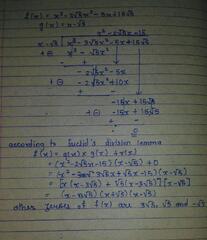 f(x) = x³ - 3√5x² - 5x + 15√5
g(x) = x - √5
x² - 2√5x - 15
x - √5 | x³ - 3√5x² - 5x + 15√5
x³ - √5x²
- +
- 2√5x² - 5x
- 2√5x² + 10x
+ -
- 15x + 15√5
- 15x + 15√5
+ -
0
according to Euclid's division lemma
f(x) = g(x) × q(x) + r(x)
= (x² - 2√5x - 15)(x - √5) + 0
(x - √5)
= (x - 3√5)(x + √5)(x - √5)
other zeroes of f(x) are 3√5, √5 and -√5